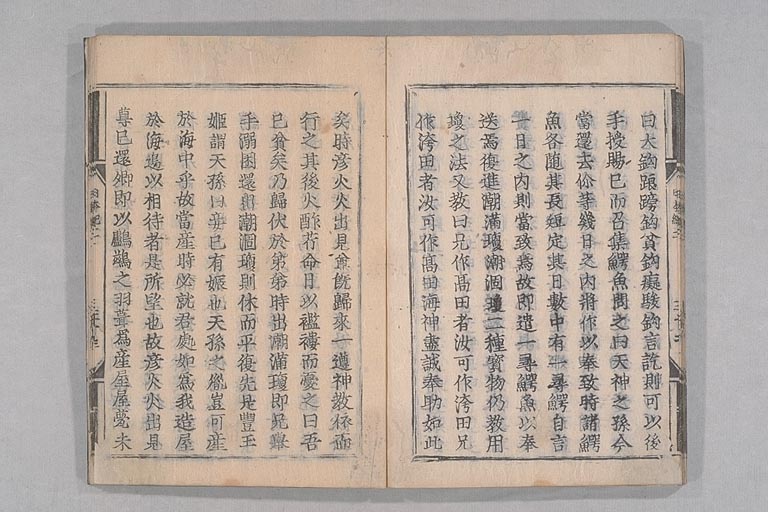 曰大鉤踉䠙鉤貧鉤癡騃鉤言訖則可以後
手投賜已而召集鰐魚問之曰天神之孫今
當還去你等幾日之內將作以奉致時諸鰐
魚各隨其長短定其日數中有一尋鰐自言
一日之內則當致焉故即遣一尋鰐魚以奉
送焉復進潮滿瓊潮涸瓊二種寶物仍教用
瓊之法又教曰兄作高田者汝可作洿田兄
作洿田者汝可作高田海神盡誠奉助如此
矣時彥火火出見尊既歸來一遵神教依而
行之其後火酢芹命日以襤褸而憂之曰吾
已貧矣乃歸伏於弟弟時出潮滿瓊即兄舉
手溺困還出潮涸瓊則休而平復先是豐玉
姬謂天孫曰妾已有娠也天孫之胤豈可產
於海中乎故當產時必就君處如為我造屋
於海邊以相待者是所望也故彥火火出見
尊已還鄉即以鸕鷀之羽葺為產屋屋甍未